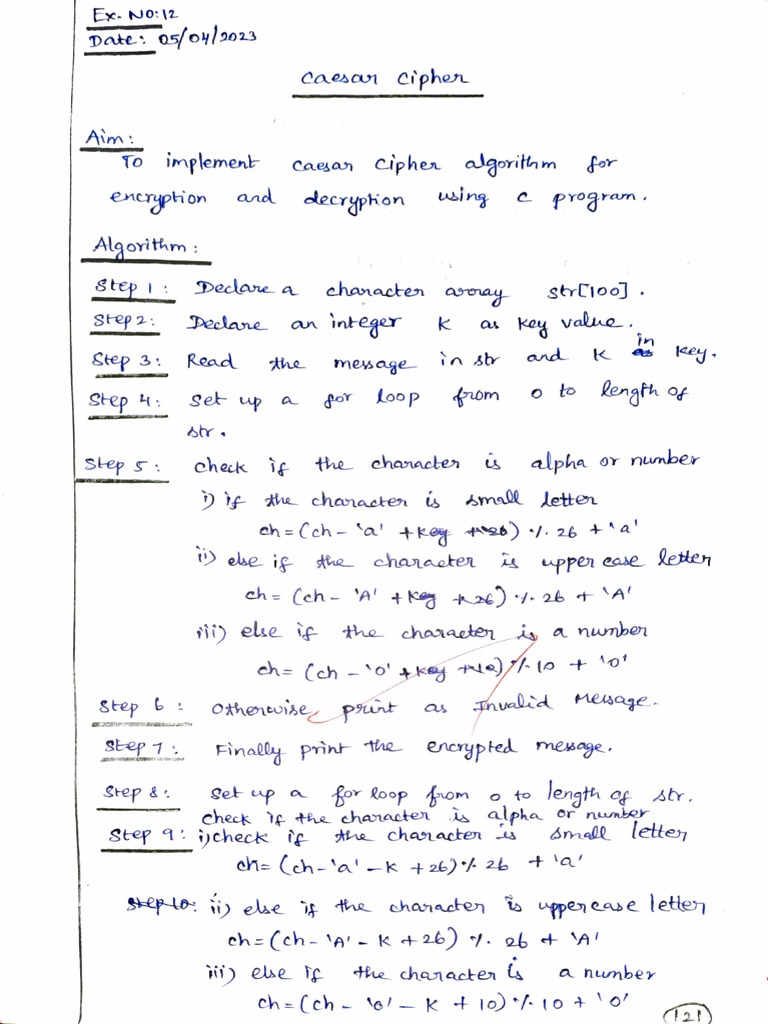 Ex. NO:12
Date: 05/04/2023
Caesar Cipher
Aim:
To implement caesar cipher algorithm for
encryption and decryption using c program.
Algorithm:
Step 1: Declare a character array str[100].
Step 2: Declare an integer K as key value.
Step 3: Read the message in str and K in key.
Step 4: Set up a for loop from 0 to length of
str.
Step 5: check if the character is alpha or number
i) if the character is small letter
ch=(ch-'a' +key +26) % 26 + 'a'
ii) else if the character is upper case letter
ch= (ch- 'A' +key +26) % 26 + 'A'
iii) else if the character is a number
ch= (ch - '0' +key +10) % 10 + '0'
Step 6: Otherwise print as Invalid Message.
Step 7: Finally print the encrypted message.
Step 8: Set up a for loop from 0 to length of str.
check if the character is alpha or number
Step 9: i)check if the character is small letter
ch= (ch-'a' - K +26) % 26 + 'a'
Step 10: ii) else if the character is uppercase letter
ch=(ch-'A' - K +26) % 26 + 'A'
iii) else if the character is a number
ch=(ch - '0' - K + 10) % 10 + '0'
121